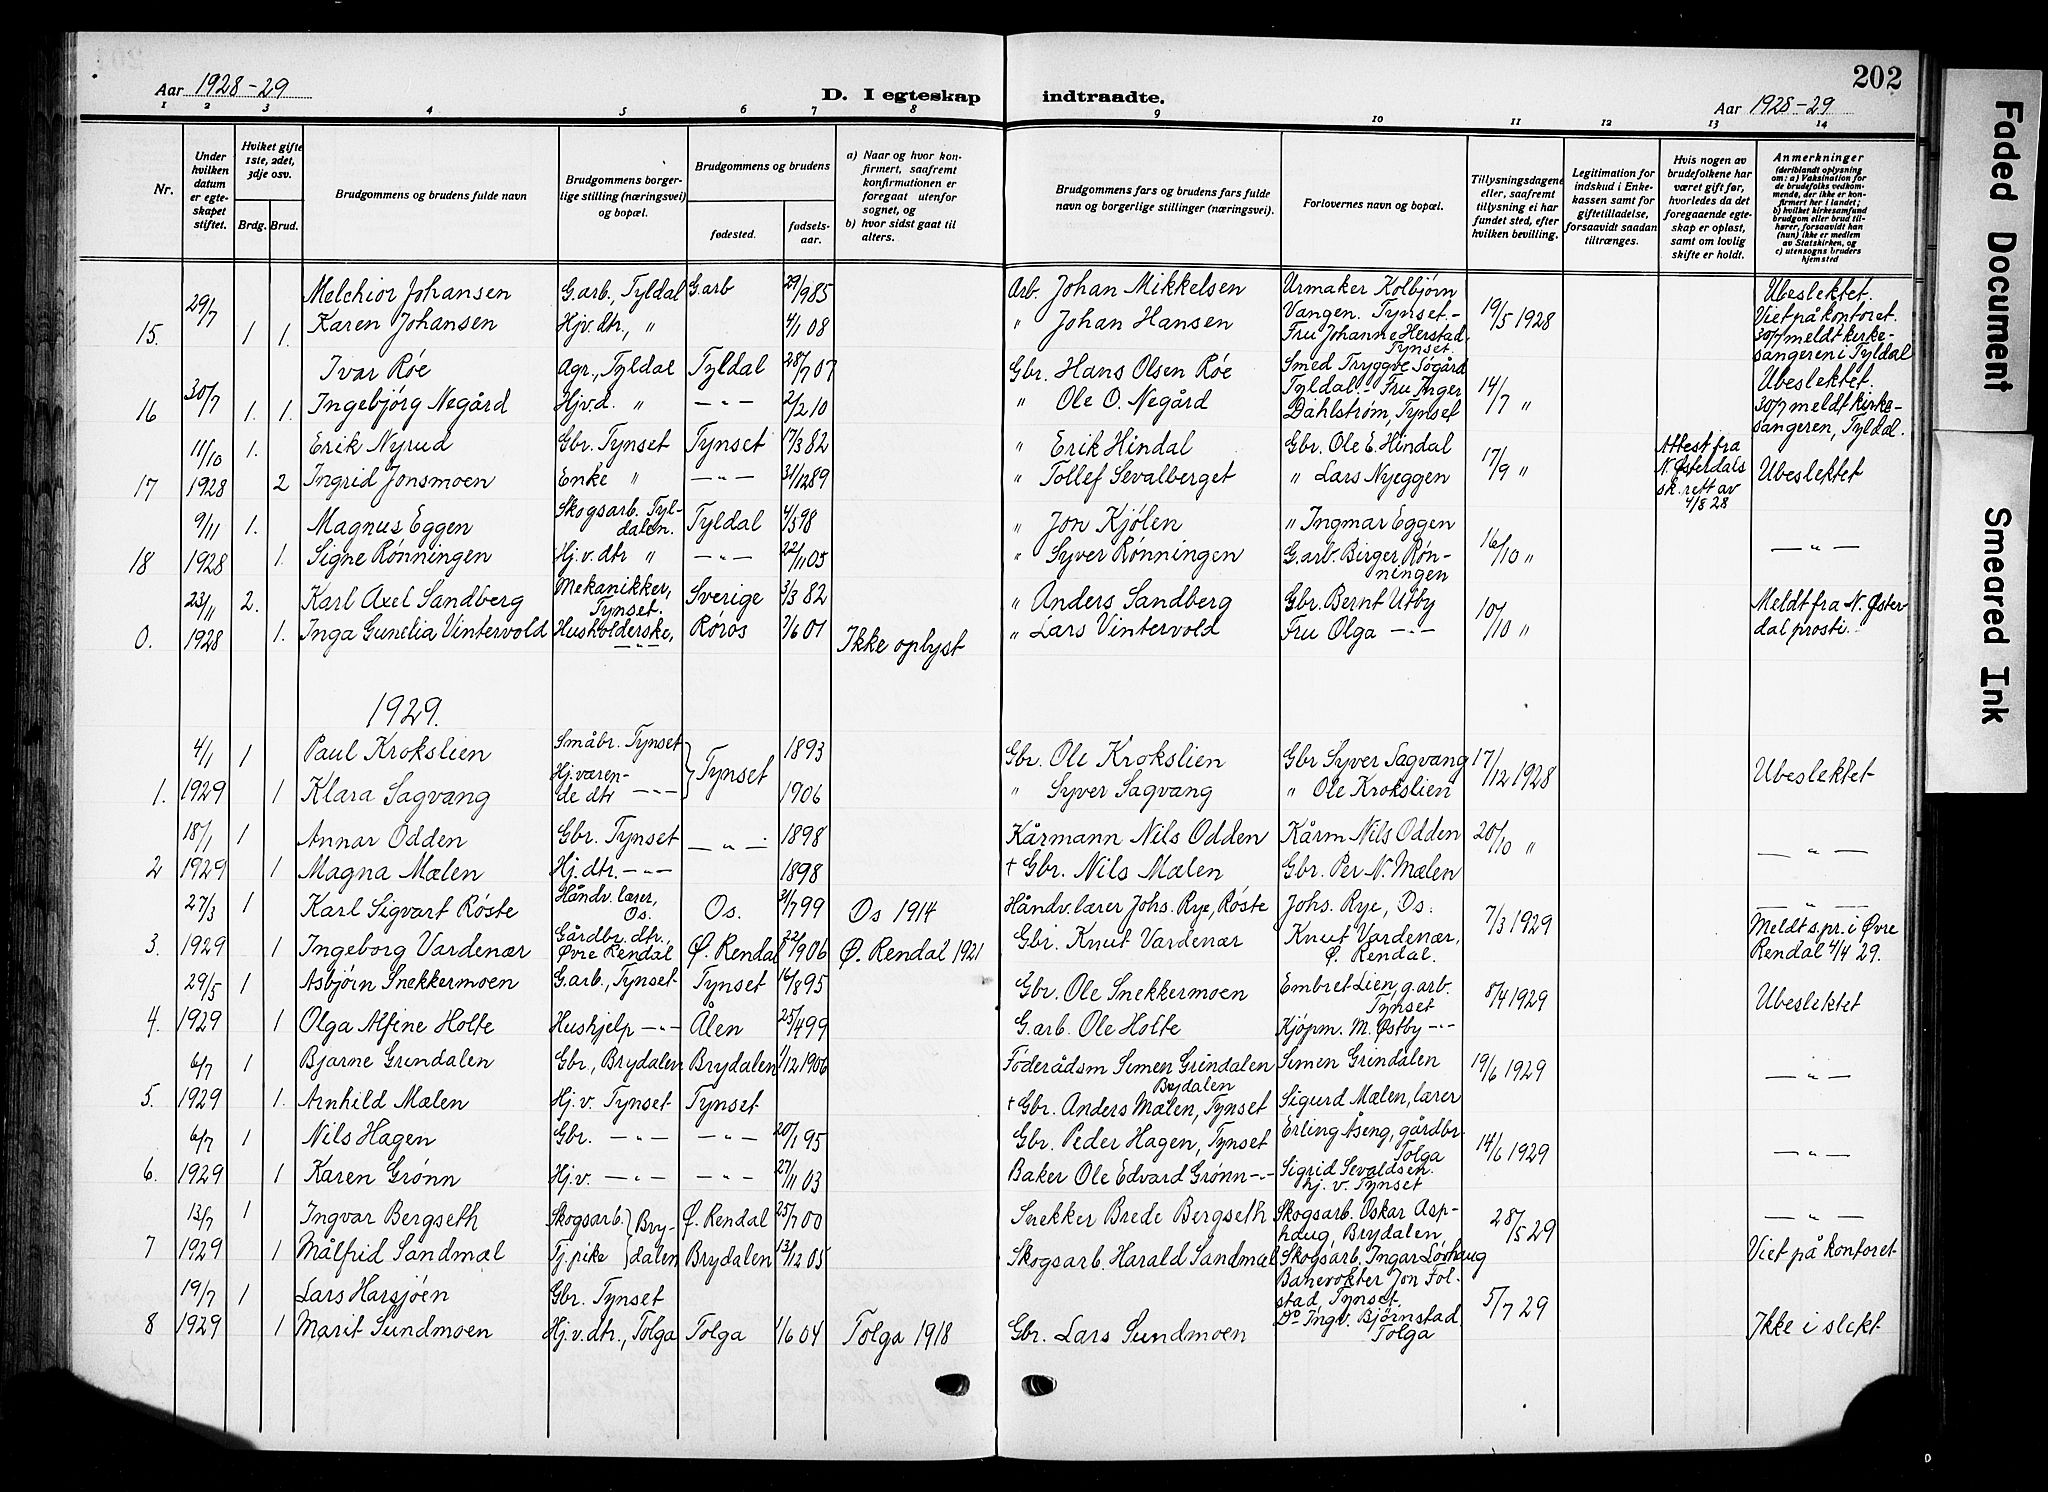 202
Aar 1928-29
D. I egteskap indtraadte.
Aar 1928-29
1 2 3 4 5 6 7 8 9 10 11 12 13 14
Nr.
Under hvilken datum er egteskapet stiftet.
Hviket gifte 1ste, 2det, 3dje osv.
Brdg. Brud.
Brudgommens og brudens fulde navn
Brudgommens borgerlige stilling (næringsvei) og bopæl.
Brudgommens og brudens
fødested. fødselsaar.
a) Naar og hvor konfirmert, saafremt konfirmationen er foregaat utenfor sognet, og
b) hvor sidst gaat til alters.
Brudgommens fars og brudens fars fulde navn og borgerlige stillinger (næringsvei).
Forlovernes navn og bopæl.
Tillysningsdagene eller, saafremt tillysning ei har fundet sted, efter hvilken bevilling.
Legitimation for indskud i Enkekassen samt for giftetilladelse, forsaavidt saadan tiltrænges.
Hvis nogen av brudefolkene har været gift før, hvorledes da det foregaaende egteskap er opløst, samt om lovlig skifte er holdt.
Anmerkninger (deriblandt oplysning om: a) Vaksination for de brudefolks vedkommende, der ikke er konfirmert her i landet; b) hvilket kirkesamfund brudgom eller brud tilhører, forsaavidt han (hun) ikke er medlem av Statskirken, og c) utensogns bruders hjemsted
29/7 Melchior Johansen G.arb., Tyldal G.arb 29/985 Arb. Johan Mikkelsen Urmaker Kolbjørn Vangen. Tynset.- 19/5 1928 Ubeslektet. Viet på kontoret.
15. 1 1. Karen Johansen Hjv.dtr., " 4/1 08 " Johan Hansen Fru Johanne Herstad, Tynset. 30/7 meldt kirkesangeren i Tyldal
30/7 Ivar Røe Agr., Tyldal Tyldal 28/7 07 Gbr. Hans Olsen Røe Smed Tryggve Søgård Tyldal - Fru Inger 14/7 " Ubeslektet.
16 1. 1. Ingebjørg Negård Hjv.d. " -"- 2/2 10 " Ole O. Negård Dahlstrøm, Tynset 30/7 meldt kirkesangeren, Tyldal.
11/10 1. Erik Nyrud Gbr. Tynset Tynset 17/3 82 " Erik Hindal Gbr. Ole E. Hindal 17/9 " Attest fra N. Østerdals sk.rett av 4/8 28 Ubeslektet
17 1928 2 Ingrid Jonsmoen Enke " -"- 31/12 89 " Tollef Sevalberget " Lars Nyeggen
9/11 1. Magnus Eggen Skogsarb. Tyldalen. Tyldal 4/3 98 " Jon Kjølen " Ingmar Eggen 16/10 " -"-
18 1928 1. Signe Rønningen Hj.v.dtr " -"- 22/11 05 " Syver Rønningen G.arb. Birger Rønningen
23/11 2. Karl Axel Sandberg Mekanikker, Tynset. Sverige 3/3 82 " Anders Sandberg Gbr. Bernt Utby 10/10 " Meldt fra N. Østerdal prosti.
0. 1928 1. Inga Gunelia Vintervold Husholderske, -"- Røros 7/6 01 Ikke oplyst " Lars Vintervold Fru Olga -"-
1929.
4/1 1 Paul Krokslien Småbr. Tynset Tynset 1893 Gbr. Ole Krokslien Gbr Syver Sagvang 17/12 1928 Ubeslektet
1. 1929 1 Klara Sagvang Hj.værende dtr -"- 1906 " Syver Sagvang " Ole Krokslien
18/1 1 Annar Odden Gbr. Tynset -"- 1898 Kårmann Nils Odden Kårm Nils Odden 20/10 " -"-
2 1929 1 Magna Mælen Hj.dtr. -"- 1898 + Gbr. Nils Mælen Gbr. Per N. Mælen
27/3 1 Karl Sigvart Røste Håndv.lærer, Os. Os. 31/7 99 Os 1914 Håndv.lærer Johs. Rye, Røste Johs. Rye, Os. 7/3 1929 -"-
3. 1929 1 Ingeborg Vardenær Gårdbr. dtr. Øvre Rendal Ø. Rendal 22/1906 Ø. Rendal 1921 Gbr. Knut Vardenær Knut Vardenær, Ø. Rendal. Meldt s.pr. i Øvre Rendal 4/4 29.
29/5 1 Asbjørn Snekkermoen G.arb., Tynset Tynset 16/8 95 Gbr. Ole Snekkermoen Embret Lien, g.arb. Tynset 8/4 1929 Ubeslektet
4. 1929 1 Olga Alfine Holte Hushjelp -"- Ålen 25/4 99 G.arb. Ole Holte Kjøpm. M. Østby -"-
6/7 1 Bjarne Grindalen Gbr., Brydalen Brydalen 1/12 1906 Føderådsm Simen Grindalen Brydalen Simen Grindalen 19/6 1929 -"-
5. 1929 1. Arnhild Mælen Hj.v. Tynset Tynset + Gbr. Anders Mælen, Tynset Sigurd Mælen, lærer
6/7 1 Nils Hagen Gbr. -"- -"- 20/1 95 Gbr. Peder Hagen, Tynset Erling Åseng, gårdbr. Tolga 14/6 1929 -"-
6. 1929 1 Karen Grønn Hj.v. -"- -"- 27/11 03 Baker Ole Edvard Grønn -"- Sigrid Sevaldsen. hj. v. Tynset
13/7 1 Ingvar Bergseth Skogsarb. Brydalen Ø. Rendal 25/7 00 Snekker Brede Bergseth Skogsarb. Oskar Asphaug, Brydalen, 28/5 29 -"-
7 1929 1 Målfrid Sandmæl Tj.pike Brydalen 13/12 05 Skogsarb. Harald Sandmæl Skogsarb. Ingar Løvhaug Viet på kontoret
19/7 1 Lars Harsjøen Gbr. Tynset Banevokter Jon Tolstad, Tynset. 5/7 29
8 1929 1 Marit Sundmoen Hj.v.dtr., Tolga Tolga 1/6 04 Tolga 1918 Gbr. Lars Sundmoen Do Ingv. Bjørnstad Tolga Ikke i slekt
Faded Document
Smeared Ink